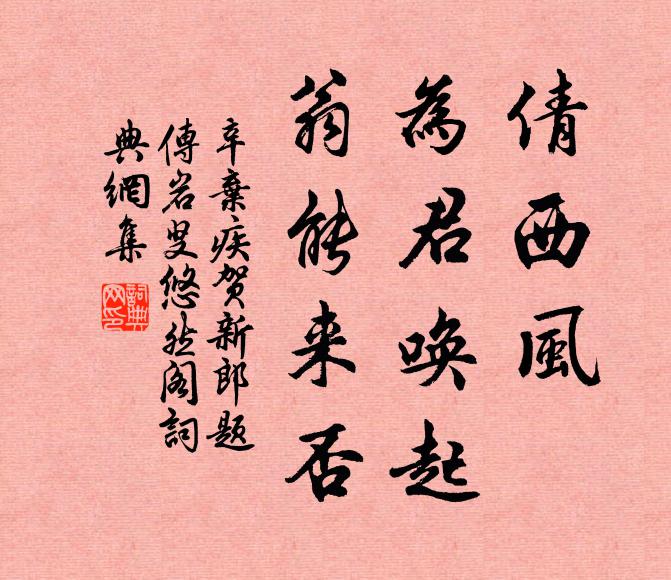 倩西風
為君喚起
翁能来否
辛棄疾贺新郎题
傅岩叟悠然阁詞
典網集
詞典
网印